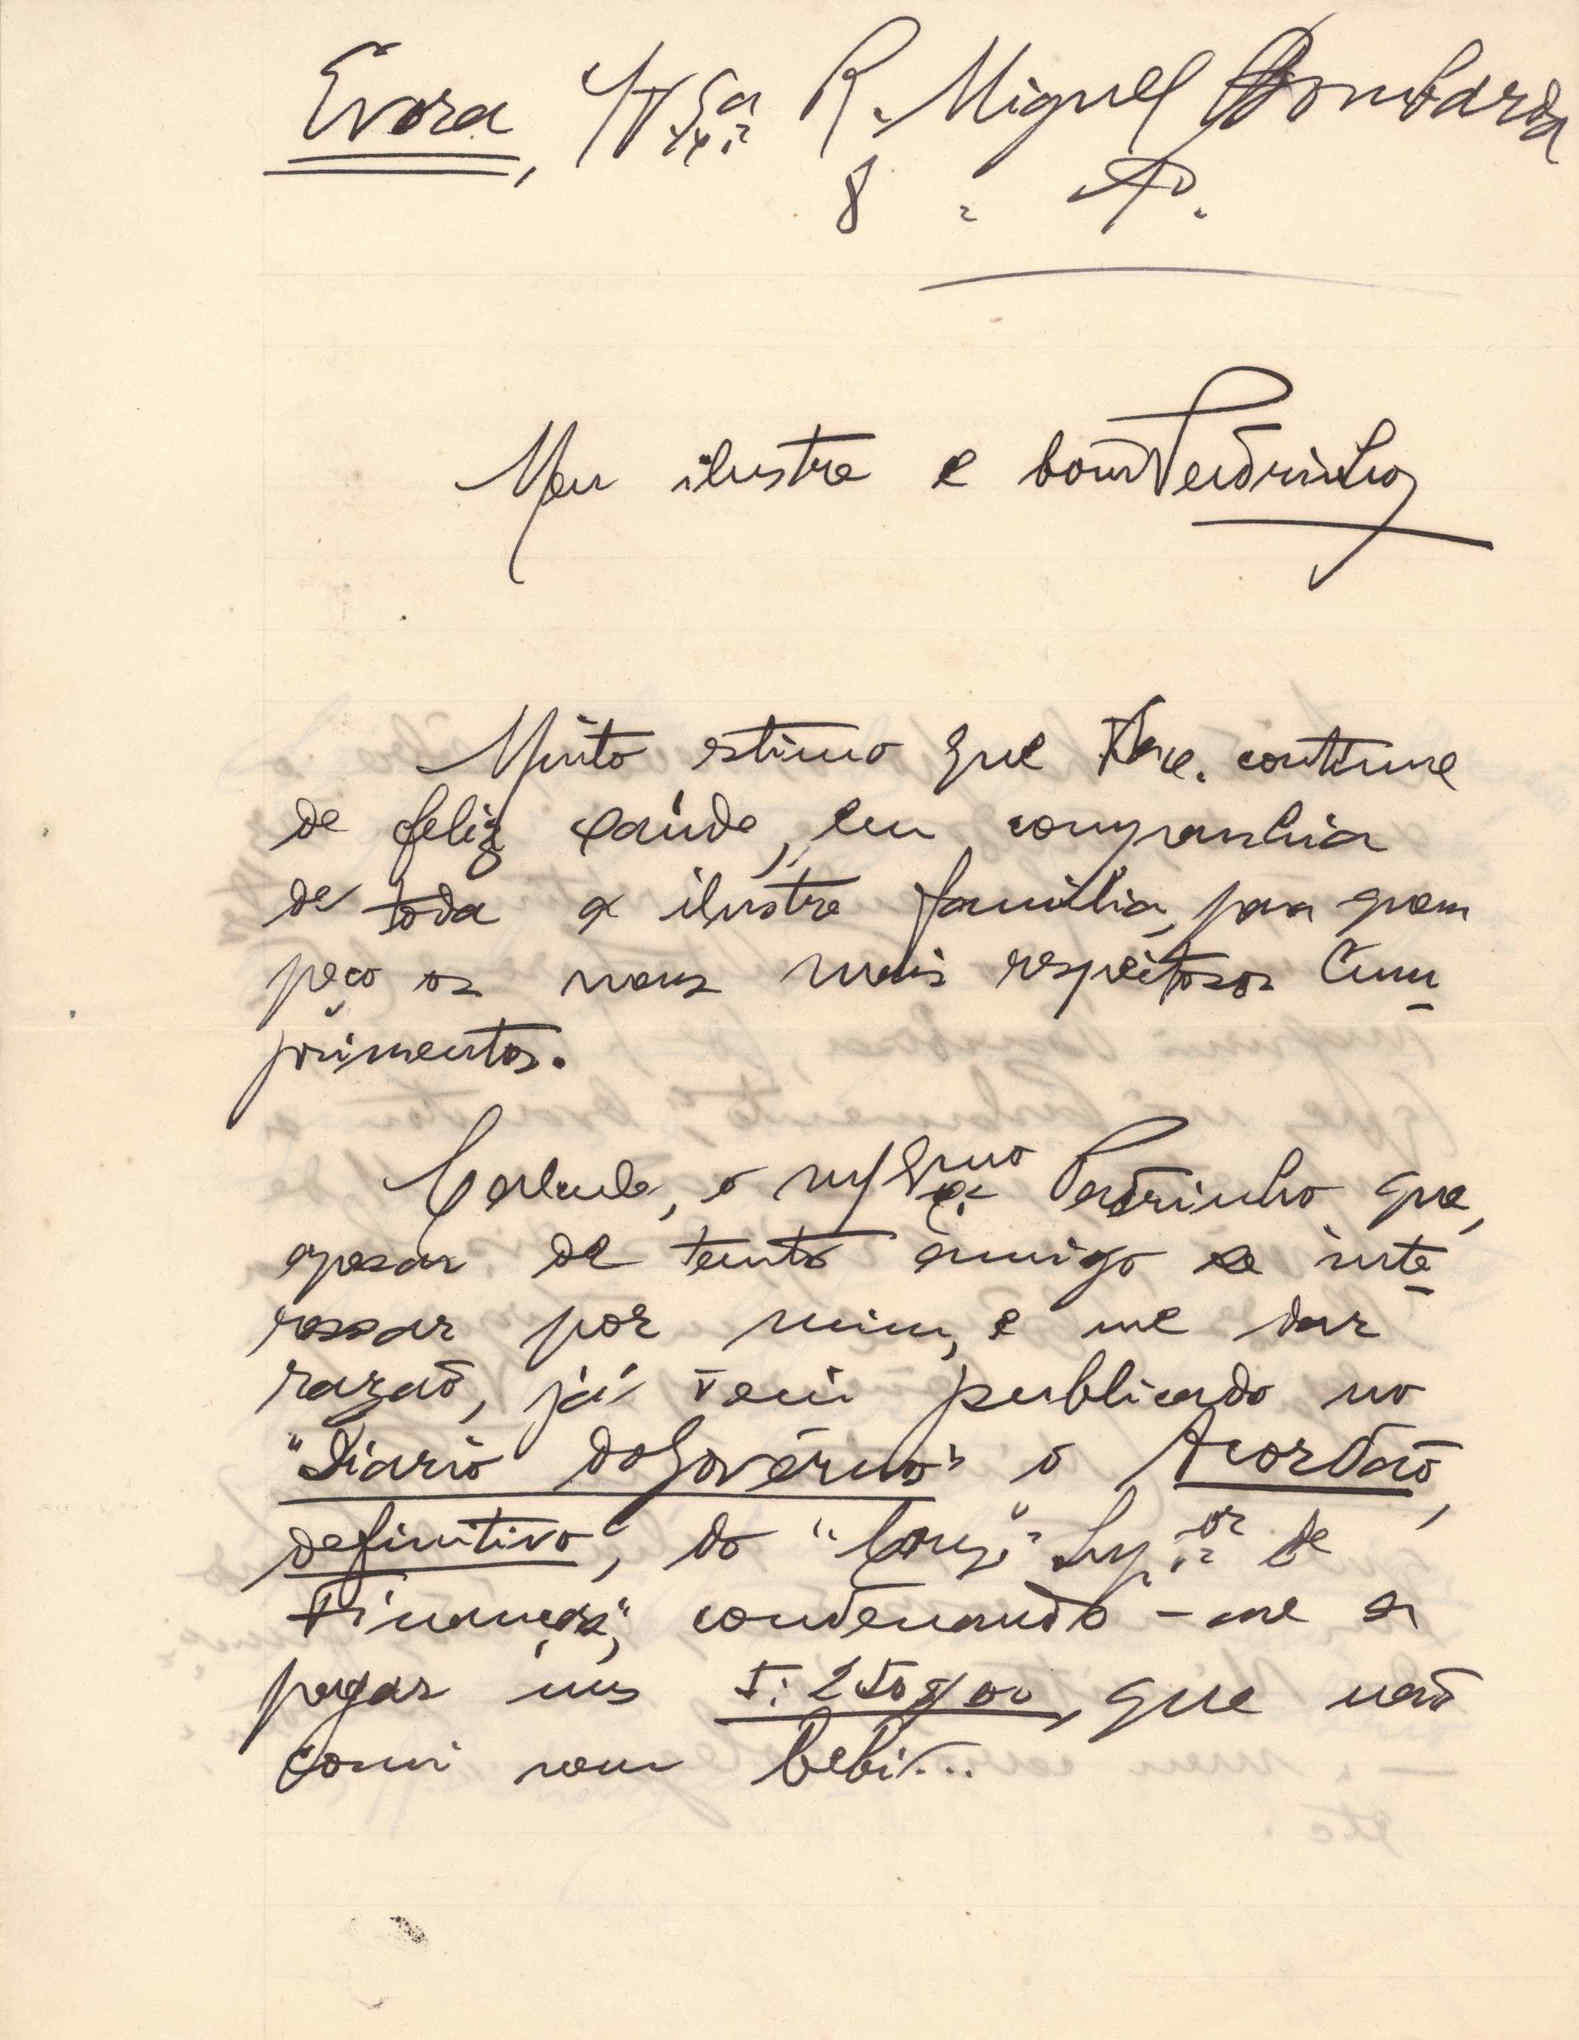 Evora, R. Miguel Bombarda
8
Meu ilustre e bom Pedrinho,
Muito estimo que continue
de feliz saúde, em companhia
de toda a ilustre familia, para quem
peço os meus mais respeitosos Cum-
primentos.
Calcule, o m/ Pedrinho que,
apesar de tanto amigo se inte-
ressar por mim, e me dar
razaõ, já vem publicado no
"Diario do Govérno" o Acordaõ,
definitivo, do "Cons." Sup.or de
Finanças", condenando-me a
pagar uns que naõ
comi nem bebi...